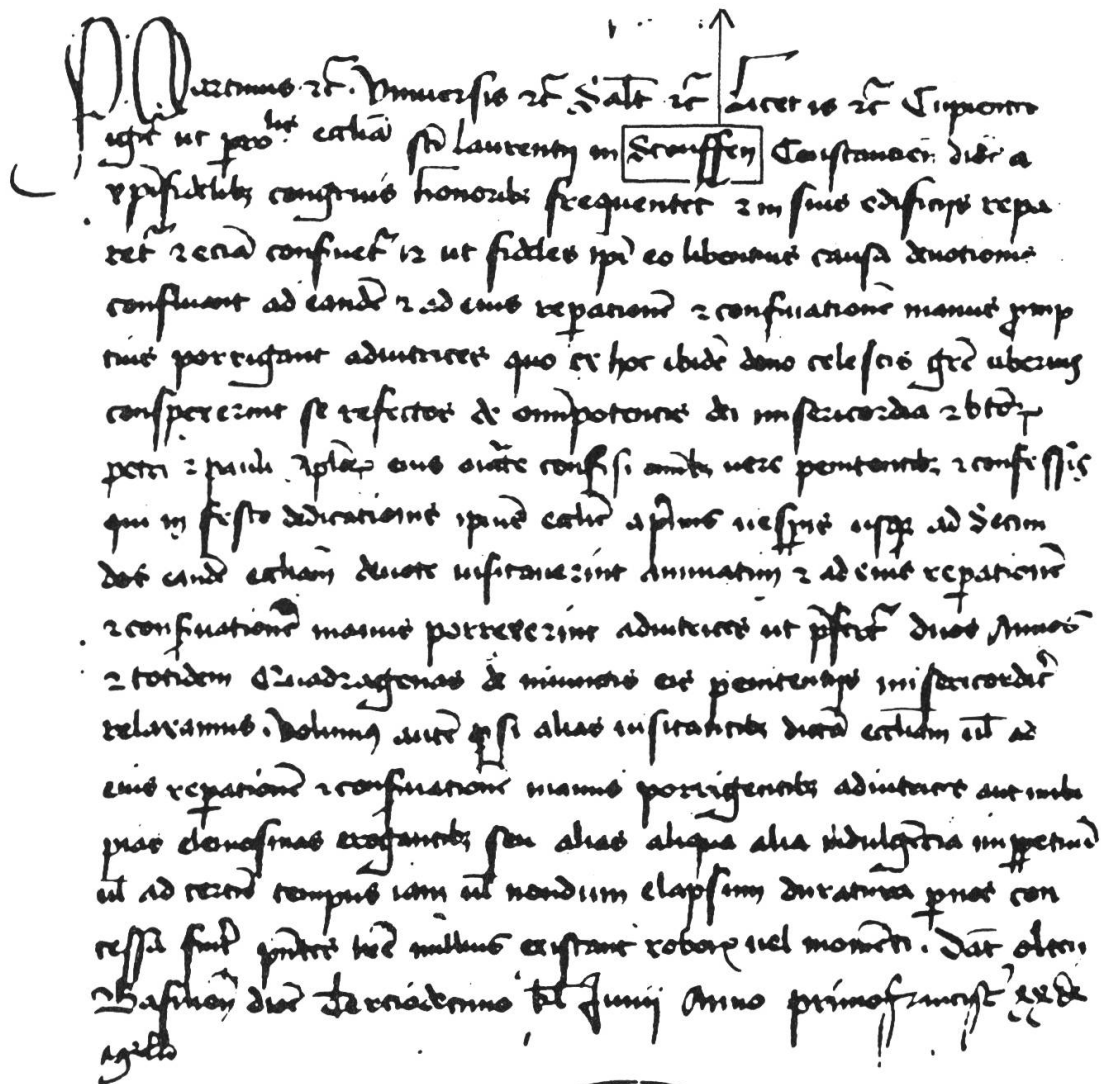 Martinus etc. Universis etc. Salt etc. Licet is etc. Cupientes
igit ut ecclia sci laurentij in Scouffen Constancien dioc a
xpifidelib congruis honorib frequentet et in suis edificijs repa
ret et ecia conservet et ut fideles ipi eo libentius causa devotionis
confluant ad eande et ad eius repatione et conservatione manus promp
tius porrigant adiutrices quo ex hoc ibide dono celestis gre uberius
conspexerint se refectos de omipotentis dei misericordia et btor
petri et pauli aplor eius aucte confisi omib vere penitentib et confessis
qui in festo dedicationis ipius ecclie a primis vespis usq ad secun
das eande eccliam devote visitaverint annuatim et ad eius repatione
et conservatione manus porrexerint adiutrices ut prefert duos Annos
et totidem Quadragenas de iniunctis eis penitentijs misericordit
relaxamus. Volumus aute q si alias visitantib dicta eccliam vl ad
eius repatione et conservatione manus porrigentib adiutrices aut inibi
pias elemosinas erogantib seu alias aliqua alia indulgentia impetuu
vl ad certu tempus iam vl nondum elapsum duratura p nos con
cessa fuerit pntes lre nullius existant robor vel momenti. Dat
Basilien dioc Terciodecimo kl Junii Anno primo
agello